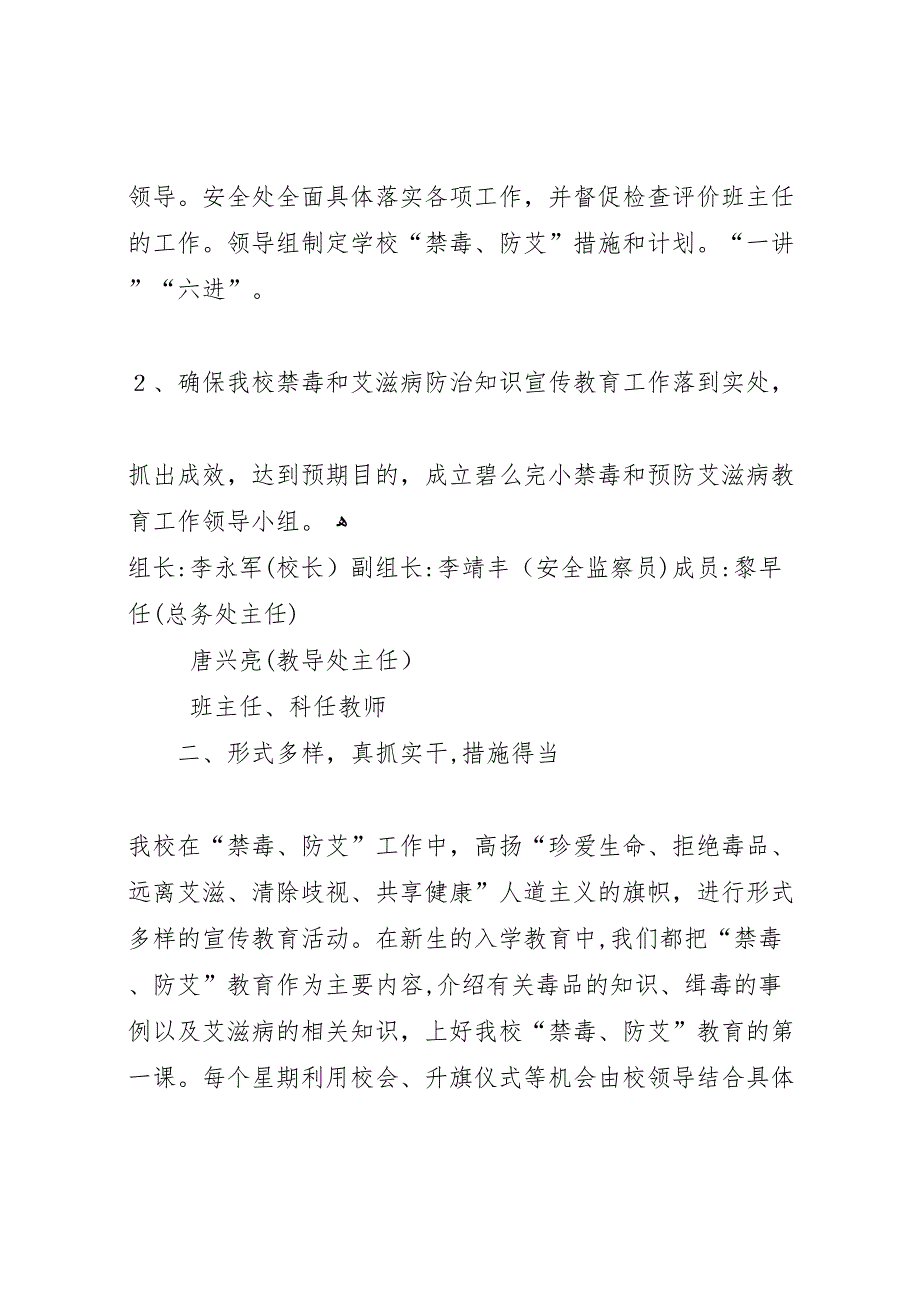 领导。安全处全面具体落实各项工作，并督促检查评价班主任
的工作。领导组制定学校“禁毒、防艾”措施和计划。“一讲
”“六进”。
２、确保我校禁毒和艾滋病防治知识宣传教育工作落到实处，
抓出成效，达到预期目的，成立碧么完小禁毒和预防艾滋病教
育工作领导小组。 ﻫ
组长:李永军(校长）副组长:李靖丰（安全监察员)成员:黎早
任(总务处主任)
唐兴亮(教导处主任）
班主任、科任教师
二、形式多样，真抓实干,措施得当
我校在“禁毒、防艾”工作中，高扬“珍爱生命、拒绝毒品、
远离艾滋、清除歧视、共享健康”人道主义的旗帜，进行形式
多样的宣传教育活动。在新生的入学教育中,我们都把“禁毒
、防艾”教育作为主要内容,介绍有关毒品的知识、缉毒的事
例以及艾滋病的相关知识，上好我校“禁毒、防艾”教育的第
一课。每个星期利用校会、升旗仪式等机会由校领导结合具体